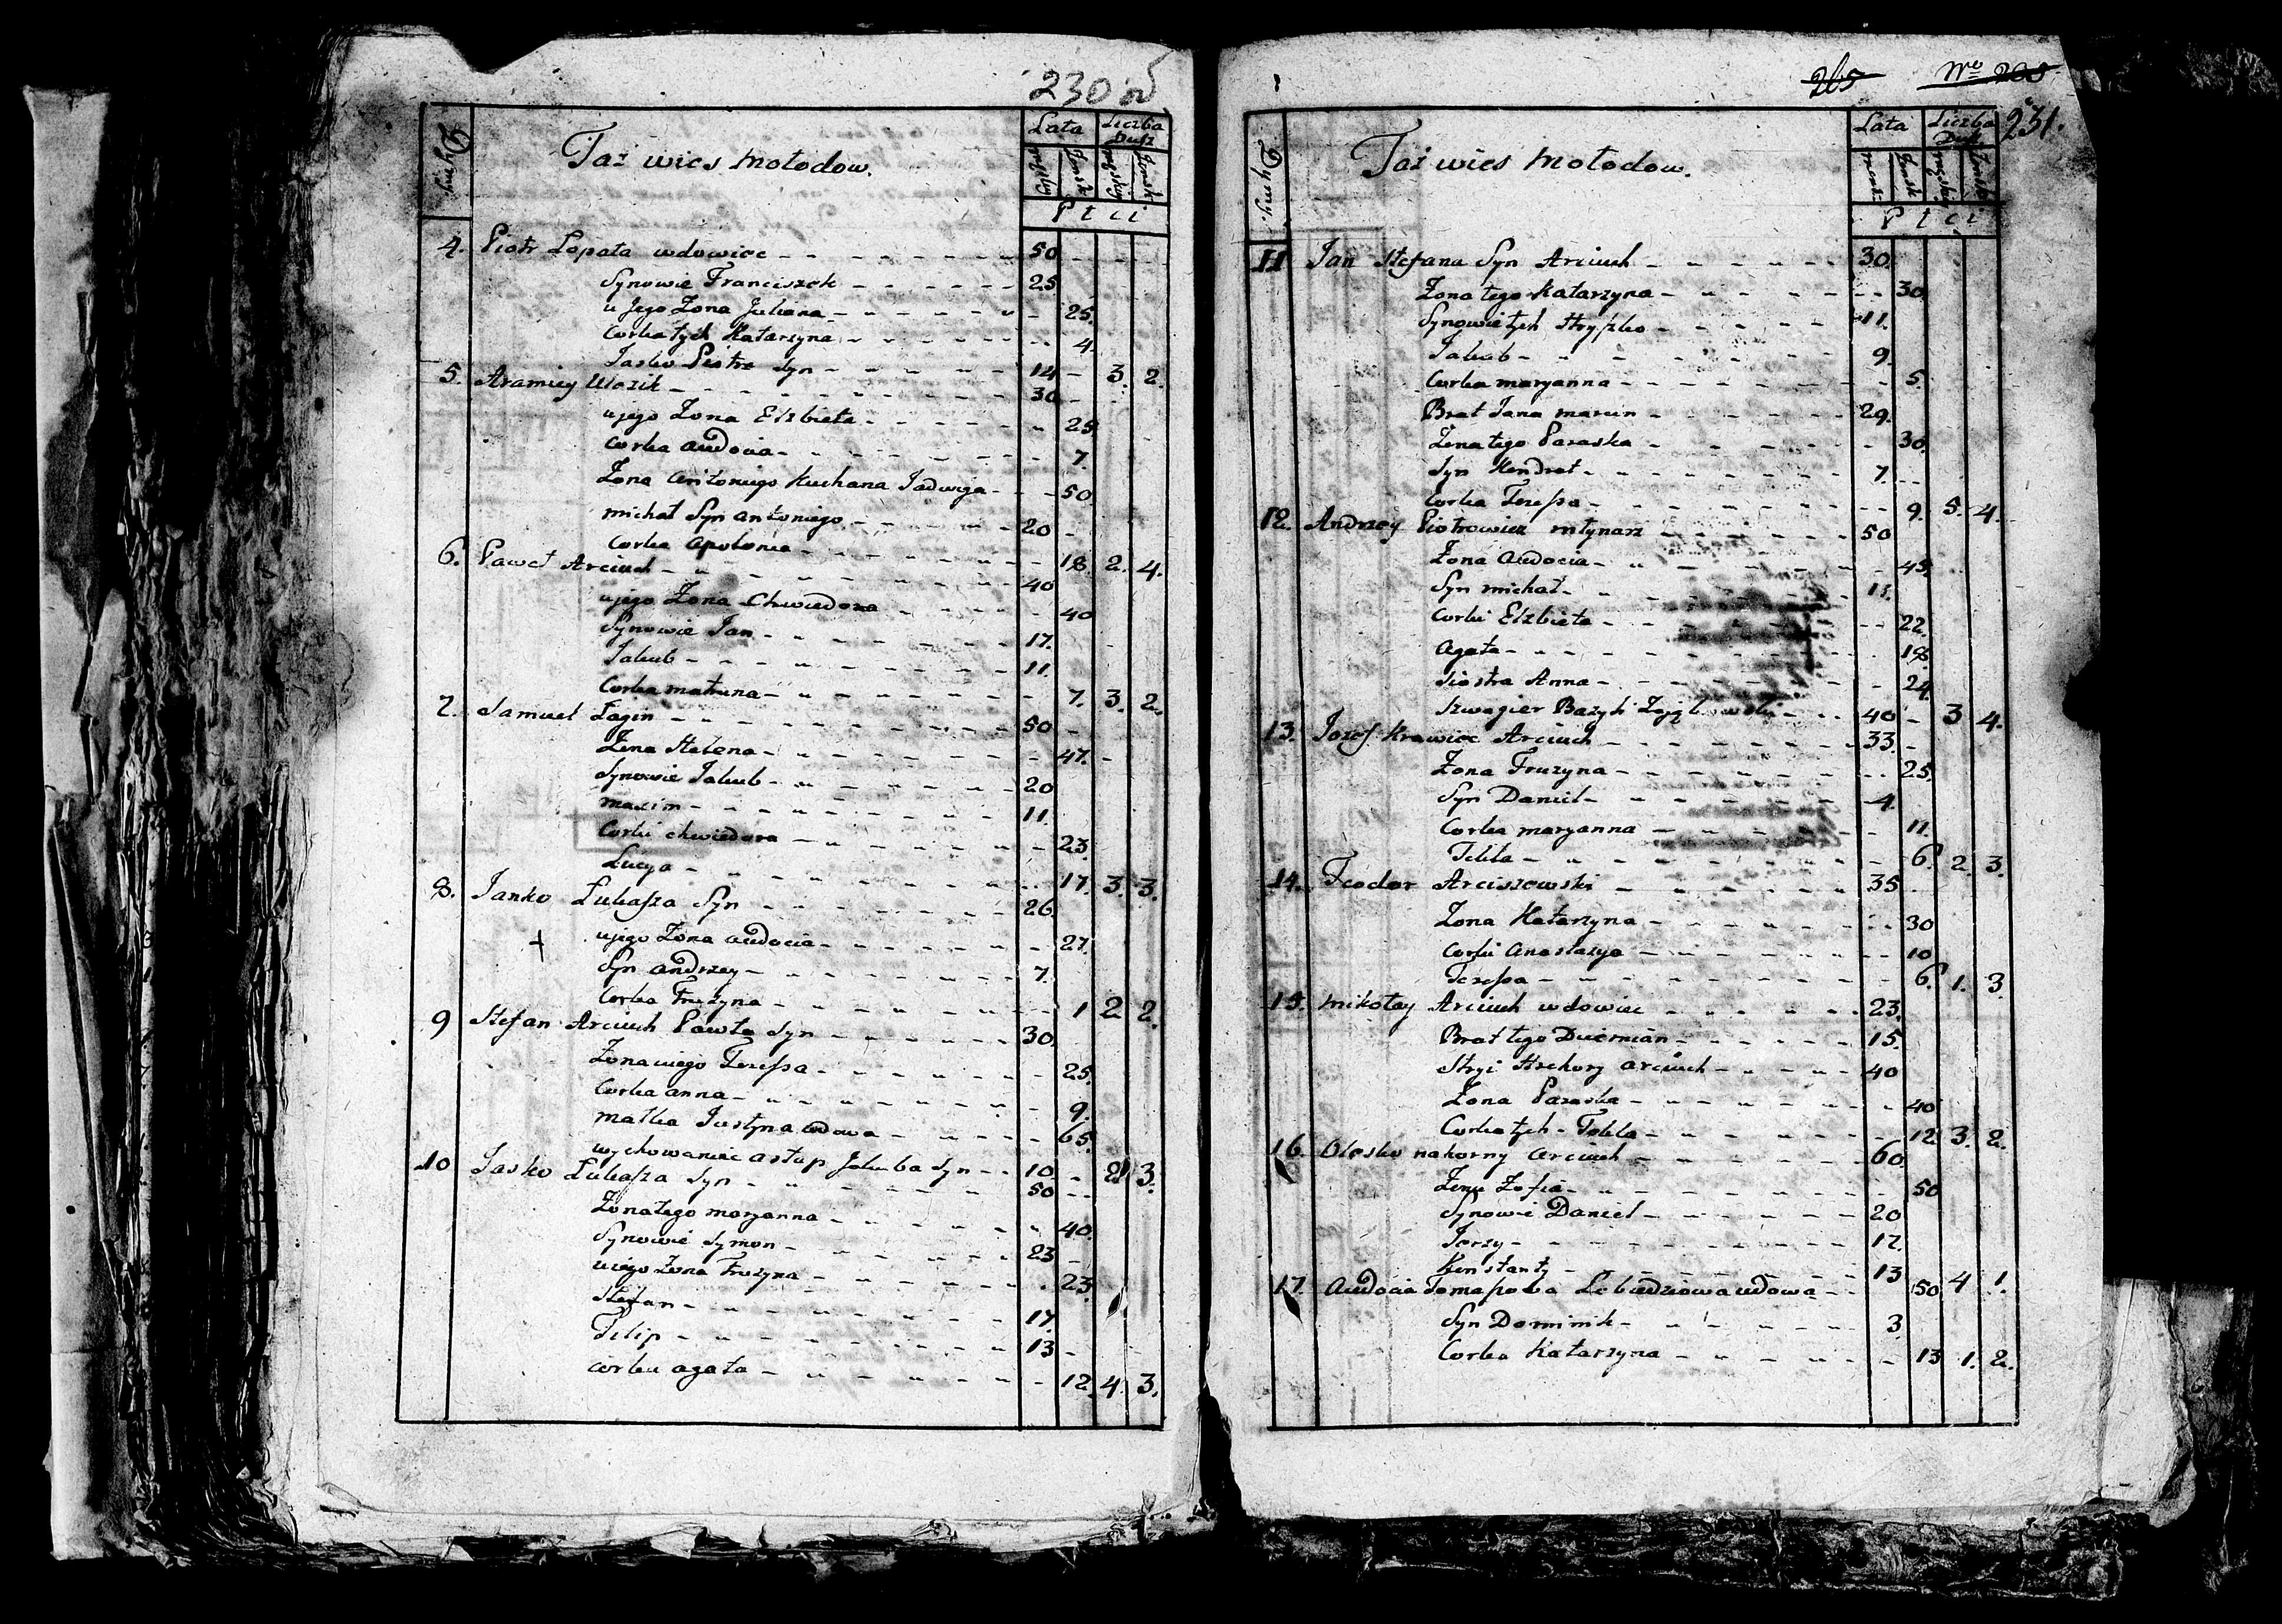 230 об
Dymy. Taż wieś Mołodow. Lata Liczba Dusz
męzkiy Żensk męzkiy Żensk
Płci
4. Piotr Łopata wdowiec 50
Synowie Franciszek 25
u jego Żona Juliana 25.
Corka tych Katarzyna 4.
Jasko Piotra Syn 14 3. 2.
5. Aramiey 30
ujego Żona Elzbieta 25
Corka Audocia 7.
Żona Antoniego Kuchana Jadwiga 50
Michał Syn Antoniego 20
Corka Apolonia 18. 2. 4.
6. Paweł Arciuch 40
ujego Żona Chwiedora 40
Synowie Jan 17.
Jakub 11.
Corka Matruna 7. 3. 2.
7. Samuel Łagin 50
Żona Helena 47.
Synowie Jakub 20
Maxim 11.
Corki Chwiedora 23
Lucya 17. 3. 3.
8. Janko Łukasza Syn 26
ujego Żona Audocia 27.
Syn Andrzey 7.
Corka Fruzyna 1 2 2.
9 Stefan Arciuch Pawła Syn 30
Żona uiego Teressa 25.
Corka Anna 9.
Matka Justyna wdowa 65.
wychowaniec Astap Jakuba Syn 10 2 3.
10 Jasko Łukasza Syn 50
Żona tego Maryanna 40
Synowie Symon 23
uiego Żona Fruzyna 23
Stefan 17.
Filip 13
Corka Agata 12. 4. 3.
265 231.
Dymy. Taż wieś Mołodow. Lata Liczba Dusz
Żensk męzkiy Żensk
Płci
11 Jan Stefana Syn Arciuch 30.
Żona tego Katarzyna 30
Synowie tych Hryszko 11.
Jakub 9.
Corka Maryanna 5.
Brat Jana Marcin 29.
Żona tego Paraska 30.
Syn Kondrat 7.
Corka Teressa 9. 5. 4.
12. Andrzey Piotrowicz młynarz 50
Żona Audocia 45
Syn Michał 11.
Corki Elzbieta 22.
Agata 18
Siostra Anna 24
Szwagier Bazyli 40 3 4.
13. Jozef Krawiec Arciuch 33.
Żona Fruzyna 25.
Syn Daniel 4.
Corka Maryanna 11.
Tekla 6. 2. 3.
14. Teodor Arciszewski 35
Żona Katarzyna 30
Corki Anastazya 10
Teressa 6. 1. 3.
15. Mikołay Arciuch wdowiec 23.
Brat tego Duemian 15.
Stryi Hrehory Arciuch 40
Żona Paraska 40
Corka tych Tekla 12. 3. 2.
16. Olesko nahorny Arciuch 60
Żona Zofia 50
Synowie Daniel 20
Jerzy 17.
Konstanty 13 4 1.
17. Audocia Tomaszowa Lebiedziowa wdowa 50
Syn Dominik 3.
Corka Katarzyna 13 1. 2.